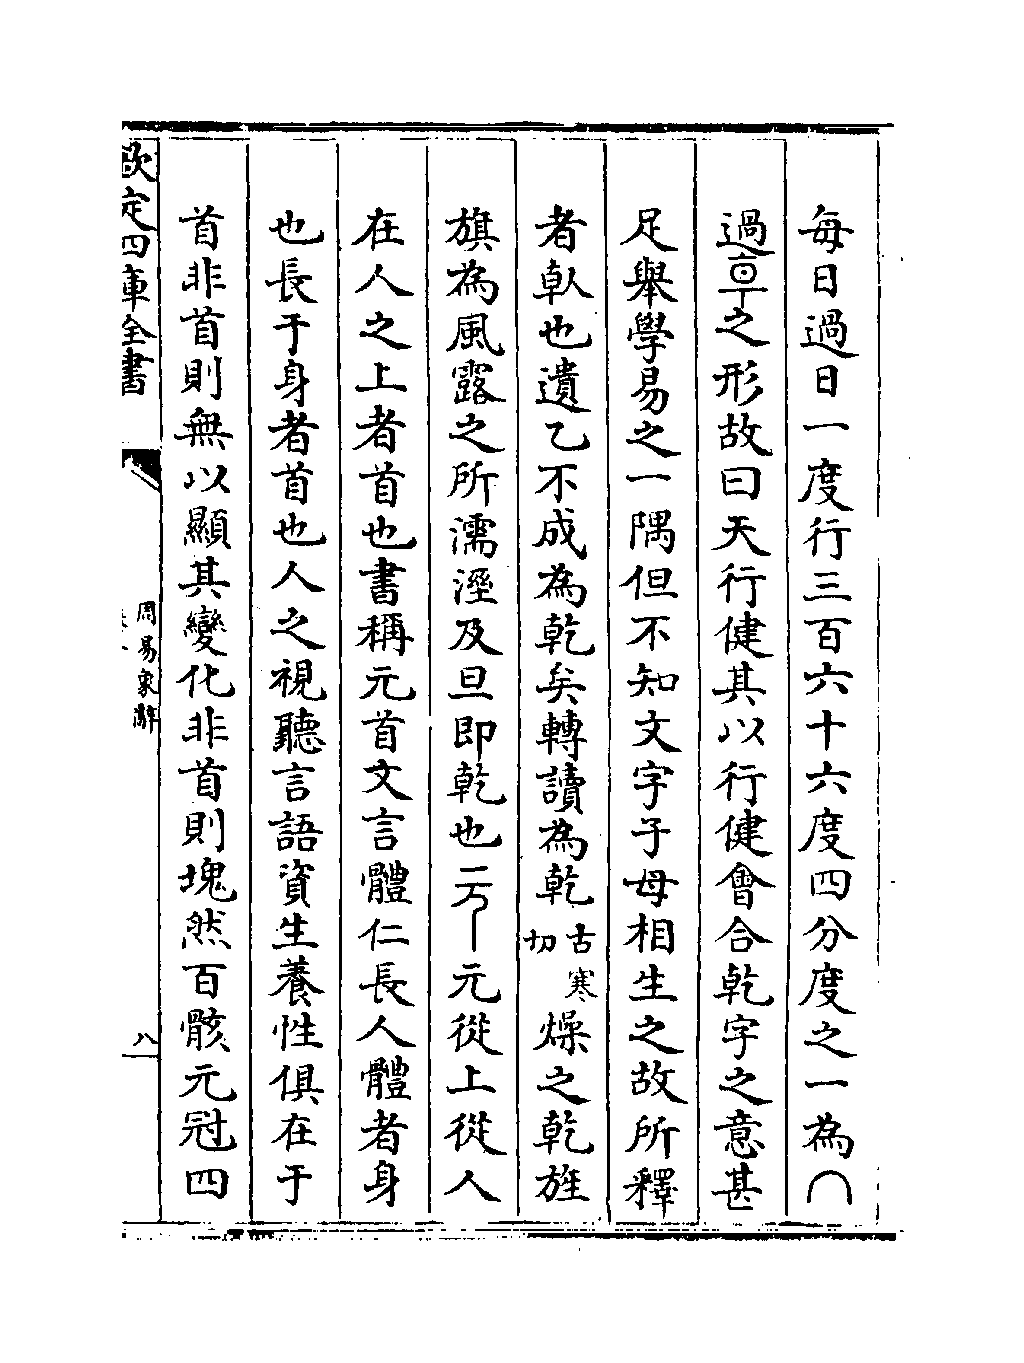 每日過日一度行三百六十六度四分度之一為
過之形故曰天行健其以行健會合乾字之意甚
足舉學易之一隅但不知文字子母相生之故所釋
者倝也遺乙不成為乾矣轉讀為乾古寒切燥之乾旌
旗為風露之所濡溼及旦即乾也元從上從人
在人之上者首也書稱元首文言體仁長人體者身
也長于身者首也人之視聽言語資生養性俱在于
首非首則無以顯其變化非首則塊然百骸元冠四
欽定四庫全書
周易象辭
八